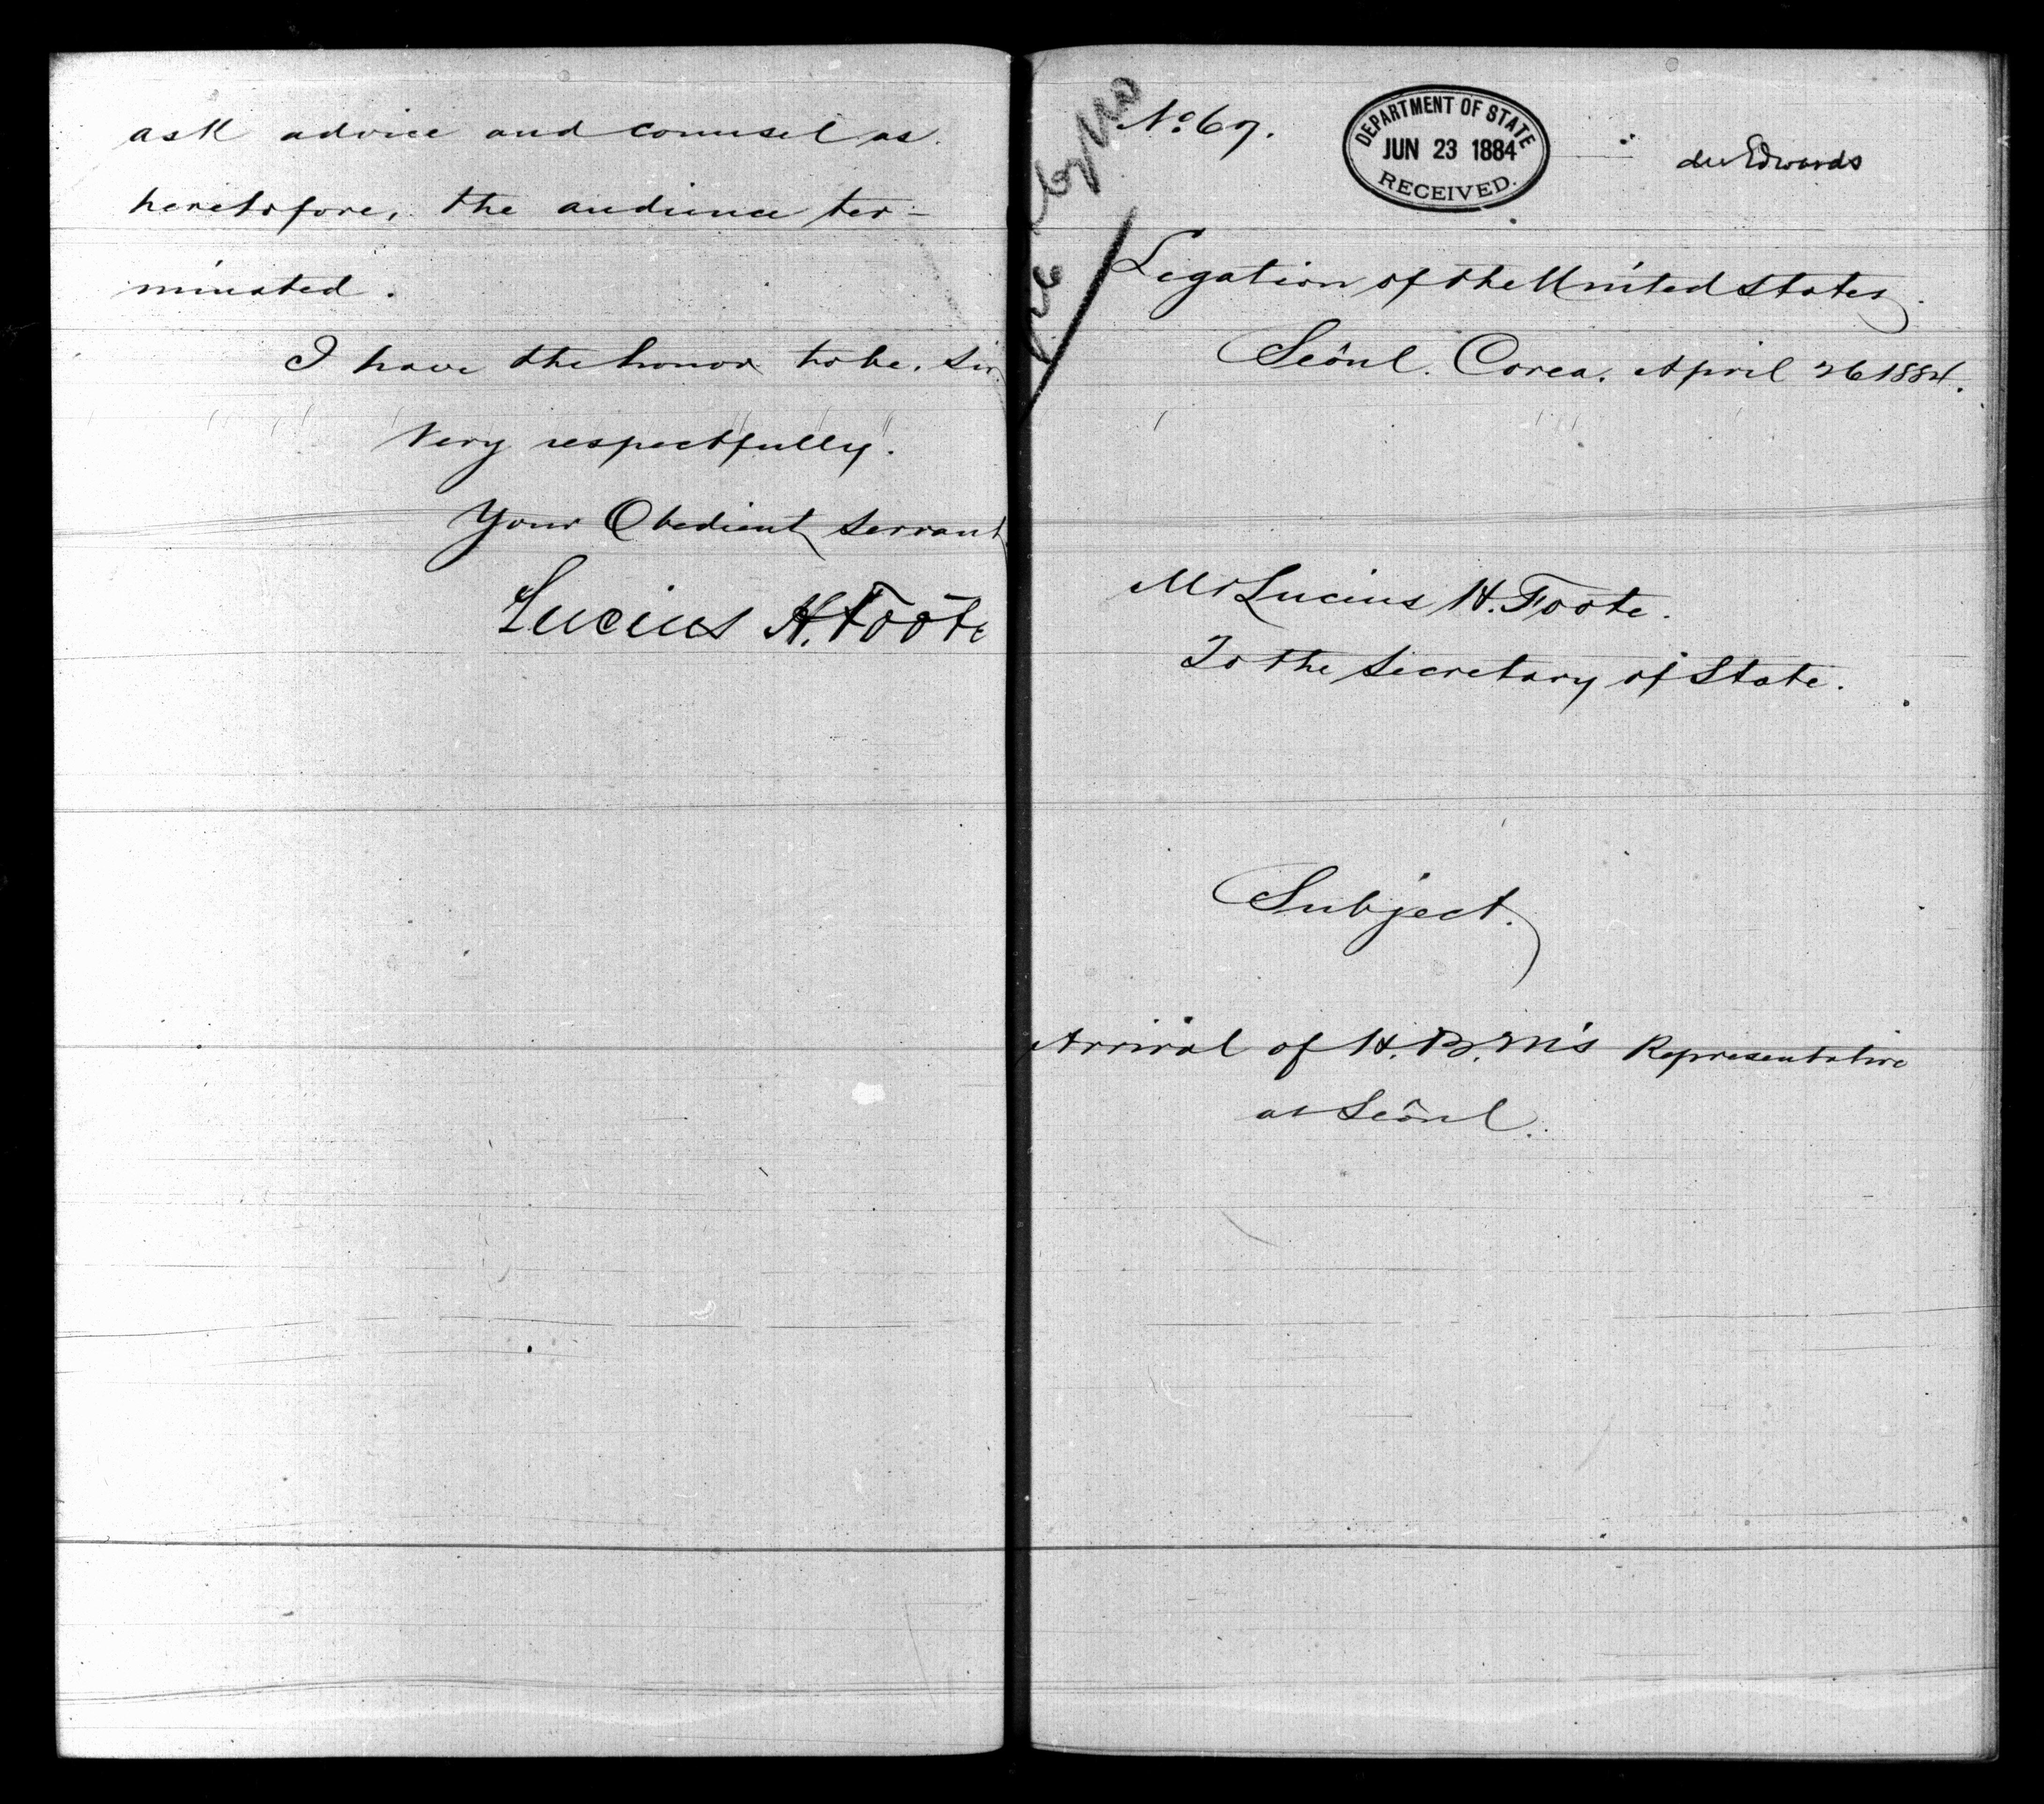 ask advice and counsel as
heretofore, the audience ter-
minated.
I have the honor to be, Sir
Very respectfully.
Your Obedient Servant
Lucius H. Foote
No 67.
DEPARTMENT OF STATE
JUN 23 1884
RECEIVED.
Edwards
Legation of the United States
Seôul. Corea. April 26 1884.
Mr Lucius H. Foote.
To the Secretary of State.
Subject.
Arrival of H.B.M's Representative
at Seôul.